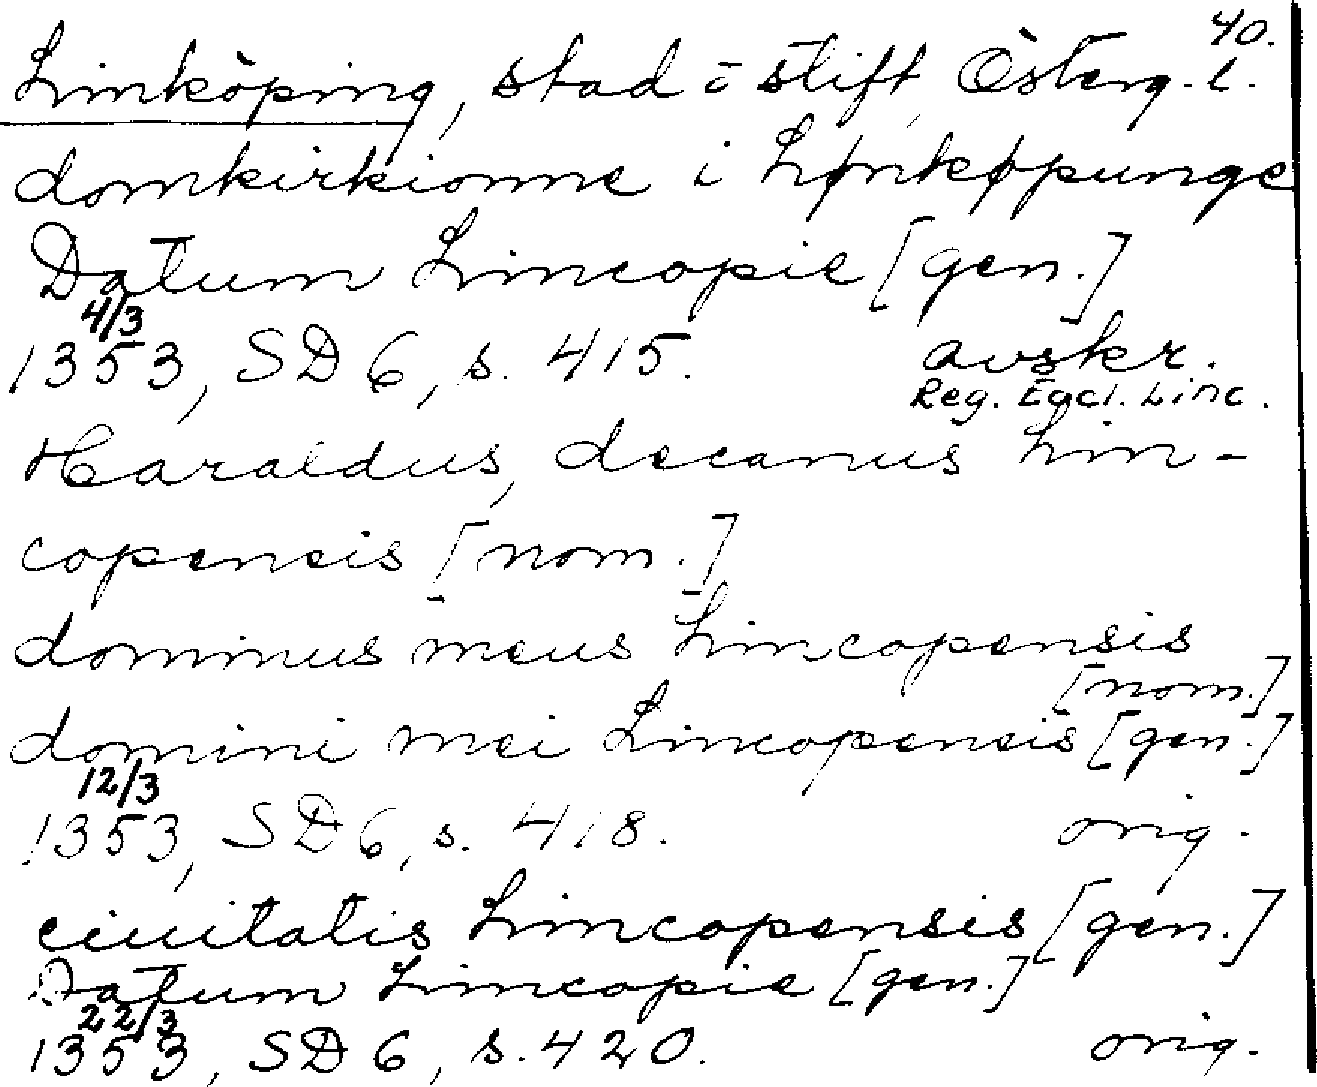 40.
Linköping, stad o stift, Österg. l.
domkirkionne i Lønkøpunge
Datum Lincopie [gen.]
4/3
1353, SD 6, s. 415. avskr.
Reg. Eccl. Linc.
Haraldus, decanus Lin-
copensis [nom.]
dominus meus Lincopensis
[nom.]
domini mei Lincopensis [gen.]
12/3
1353, SD 6, s. 418. orig.
ciuitatis Lincopensis [gen.]
Datum Lincopie [gen.]
22/3
1353, SD 6, s. 420. orig.